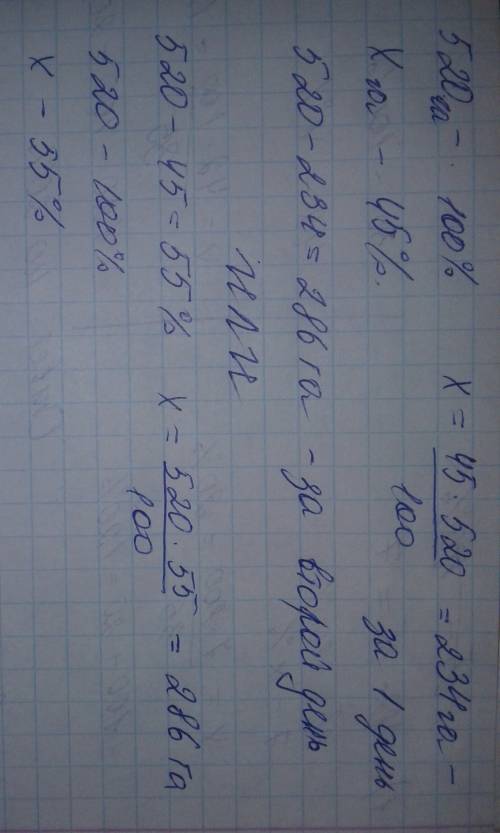 520 га - 100%   x = 45 · 520 / 100 = 234 га -
x га - 45%.   за 1 день
520 - 234 = 286 га - за второй день
или
520 - 45 = 55%   x = 520 · 55 / 100 = 286 га
520 - 100%
x - 55%